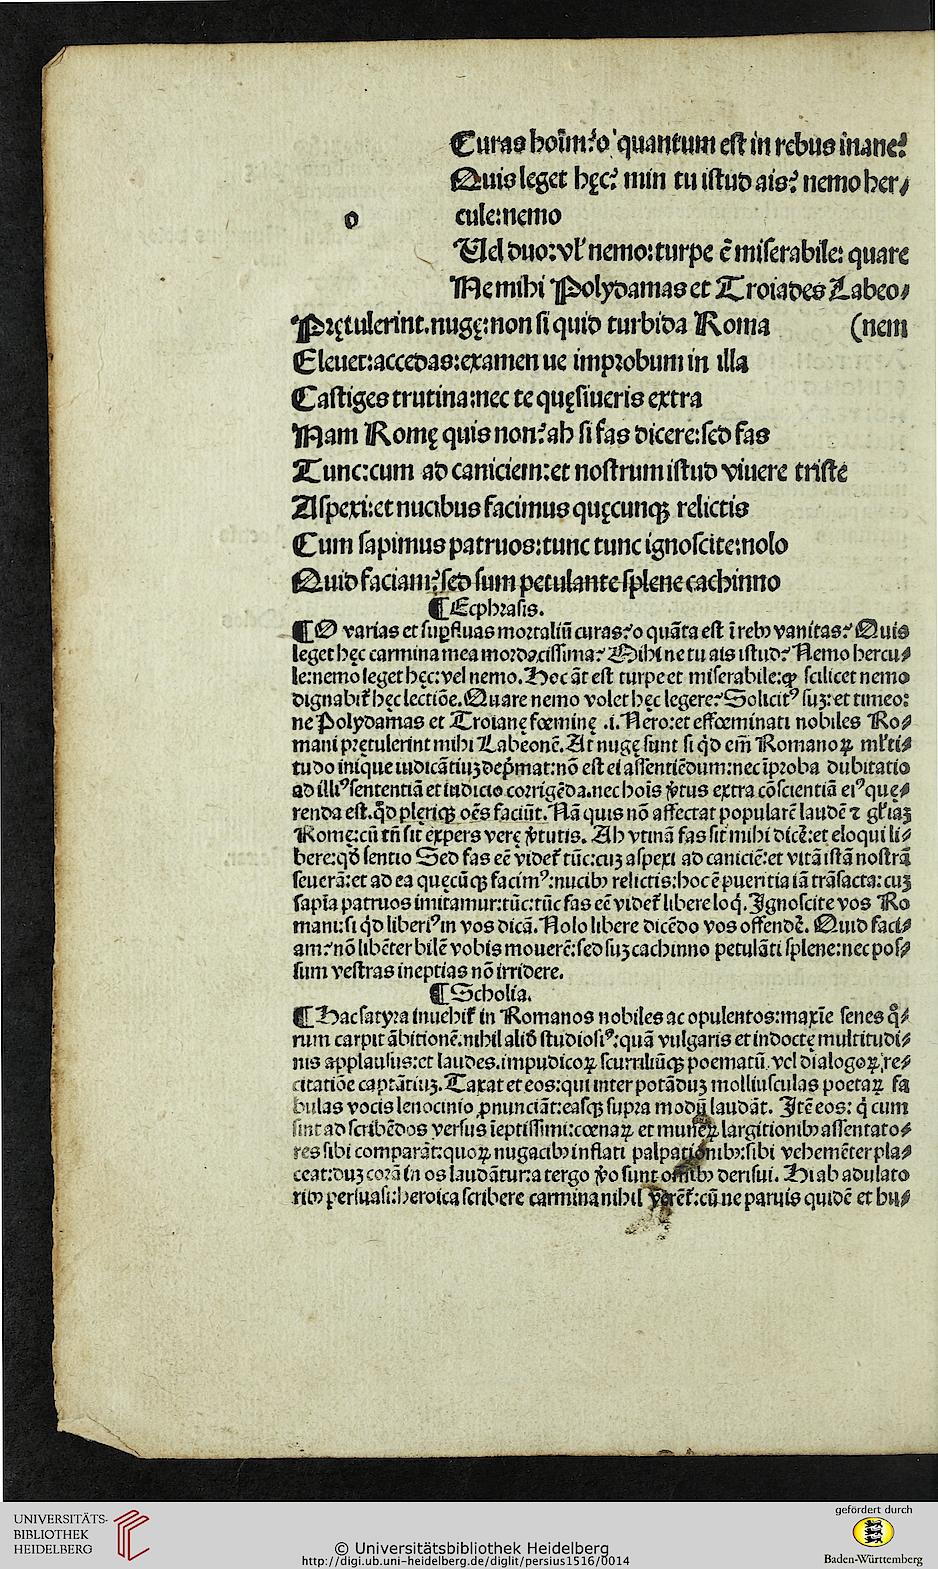 Curas hoīm:o quantum est in rebus inane?
Quis leget hęc? min tu istud ais? nemo her⸗
o
cule:nemo
Uel duo:vl' nemo:turpe ē miserabile: quare
Ne mihi Polydamas et Troiades Labeo⸗
Prętulerint.nugę:non si quid turbida Roma (nem
Eleuet:accedas:examen ue improbum in illa
Castiges trutina:nec te quęsiueris extra
Nam Romę quis non?ah si fas dicere:sed fas
Tunc:cum ad caniciem:et nostrum istud viuere triste
Aspexi:et nucibus facimus quęcunqꝫ relictis
Cum sapimus patruos:tunc tunc ignoscite:nolo
Quid faciam?sed sum petulante splene cachinno
¶Ecphrasis.
¶O varias et suꝑfluas mortaliū curas?o quāta est ī rebꝰ vanitas? Quis
leget hęc carmina mea mordacissima? Mihi ne tu ais istud? Nemo hercu⸗
le:nemo leget hęc:vel nemo. Hoc āt est turpe et miserabile:ꝙ scilicet nemo
dignabit᷑ hęc lectiōe. Quare nemo volet hęc legere? Solicitꝰ suꝫ:et timeo:
ne Polydamas et Troianę fœminę .i.Nero:et effœminati nobiles Ro⸗
mani prętulerint mihi Labeonē. At nugę sunt si qd em̄ Romanoꝝ ml'ti⸗
tudo inique iudicātiuꝫ dep̄mat:nō est ei assentiēdum:nec īproba dubitatio
ad illiꝰ sententiā et iudicio corrigēda.nec hoīs v̄tus extra cōscientiā eiꝰ quę⸗
renda est.qd pleriqꝫ oēs faciūt. Nā quis nō affectat popularē laudē ⁊ gl'iaꝫ
Romę:cū tn̄ sit expers verę v̄tutis. Ah vtinā fas sit mihi dicē:et eloqui li⸗
bere:qd sentio Sed fas eē videt᷑ tūc:cuꝫ aspexi ad caniciē:et vitā istā nostrā
seuerā:et ad ea quęcūqꝫ facimꝰ:nucibꝰ relictis:hoc ē pueritia iā trāsacta:cuꝫ
sapīa patruos imitamur:tūc:tūc fas eē videt᷑ libere loq. Ignoscite vos Ro
mani:si qd liberiꝰ in vos dicā. Nolo libere dicēdo vos offendē. Quid faci⸗
am?nō libēter bilē vobis mouerē:sed suꝫ cachinno petulāti splene:nec pos⸗
sum vestras ineptias nō irridere.
¶Scholia.
¶Hac satyra inuehit᷑ in Romanos nobiles ac opulentos:maxīe senes q⸗
rum carpit ābitionē.nihil aliд studiosiꝰ:quā vulgaris et indoctę multitudi⸗
nis applausus:et laudes.impudicoꝝ scurriliūqꝫ poematū.vel dialogoꝝ,re⸗
citatiōe captātiuꝫ. Taxat et eos:qui inter potāduꝫ molliusculas poetaꝝ fa
bulas vocis lenocinio ꝓnunciāt:easqꝫ supra modū laudāt. Itē eos: q cum
sint ad scribēdos versus īeptissimi:cœnaꝝ et muneꝝ largitionibꝰ assentato⸗
res sibi comparāt:quoꝝ nugacibꝰ inflati palpationibꝰ:sibi vehemēter pla⸗
ceat:duꝫ corā in os laudātur:a tergo vo sunt omībꝰ derisui. Hi ab adulato
ribꝰ persuasi:heroica scribere carmina nihil verēt᷑:cū ne paruis quidē et hu⸗
UNIVERSITÄTS-
BIBLIOTHEK
HEIDELBERG
© Universitätsbibliothek Heidelberg
http://digi.ub.uni-heidelberg.de/diglit/persius1516/0014
gefördert durch
Baden-Württemberg